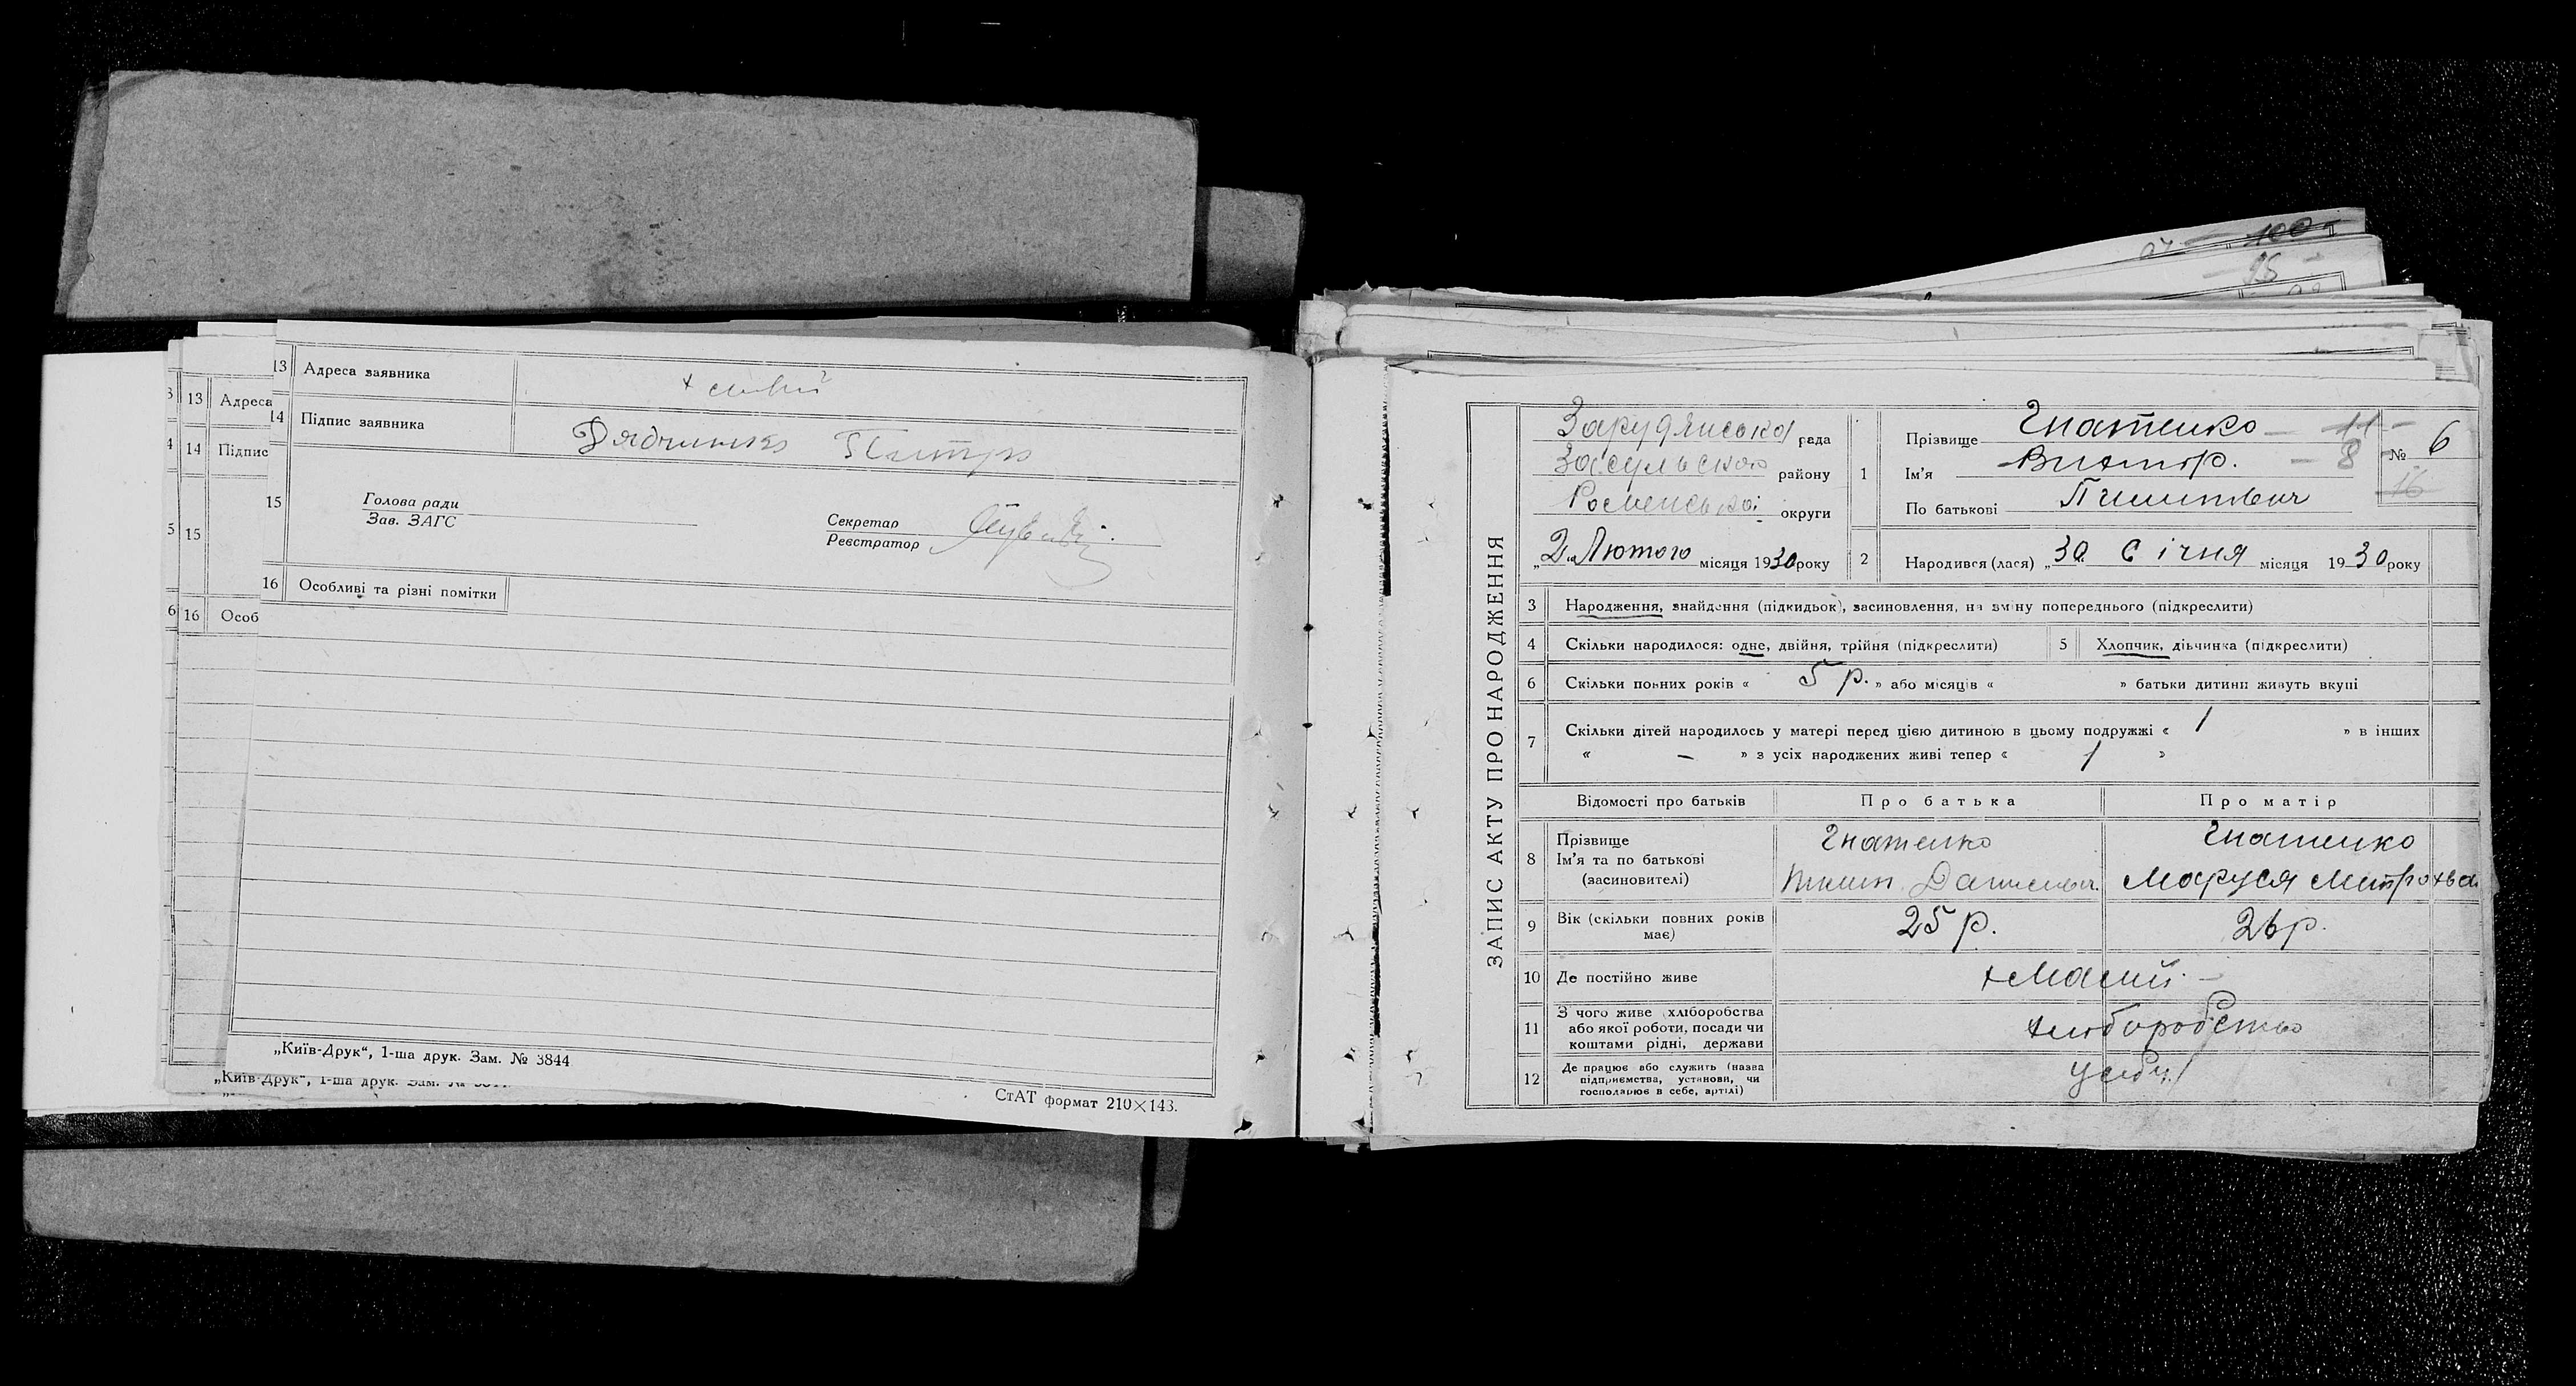 13 Адреса заявника
14 Підпис заявника Дядченко Петро
15 Голова ради
Зав. ЗАГС
Секретар
Реєстратор
16 Особливі та різні помітки
„Київ-Друк“, 1-ша друк. Зам. № 3844
СтАТ формат 210×143.
3 13 Адреса
4 14 Підпис
5 15
6 16 Особ
„Київ-Друк“, 1-ша друк. Зам. №
100
95
ЗАПИС АКТУ ПРО НАРОДЖЕННЯ
Заруднянська рада
Засульського району
Роменської округи
„2“ Лютого місяця 1930 року
1 Прізвище Гнатенко — 11 —
Ім'я Виктор. — 8
По батькові Пилипович
№ 6
16
2 Народився (лася) „30 Січня місяця 1930 року
3 Народження, знайдення (підкидьок), засиновлення, на зміну попереднього (підкреслити)
4 Скільки народилося: одне, двійня, трійня (підкреслити) 5 Хлопчик, дівчинка (підкреслити)
6 Скільки повних років « 5 р. » або місяців « » батьки дитини живуть вкупі
7 Скільки дітей народилось у матері перед цією дитиною в цьому подружжі « 1 » в інших
« — » з усіх народжених живі тепер « 1 »
Відомості про батьків Про батька Про матір
8 Прізвище Гнатенко Гнатенко
Ім'я та по батькові
(засновителі) Данилович. Маруся
9 Вік (скільки повних років має) 25 р. 26 р.
10 Де постійно живе
11 З чого живе хліборобства
або якої роботи, посади чи
коштами рідні, держави
хліборобство
12 Де працює або служить (назва
підприємства, установи, чи
господарює в себе, артілі)